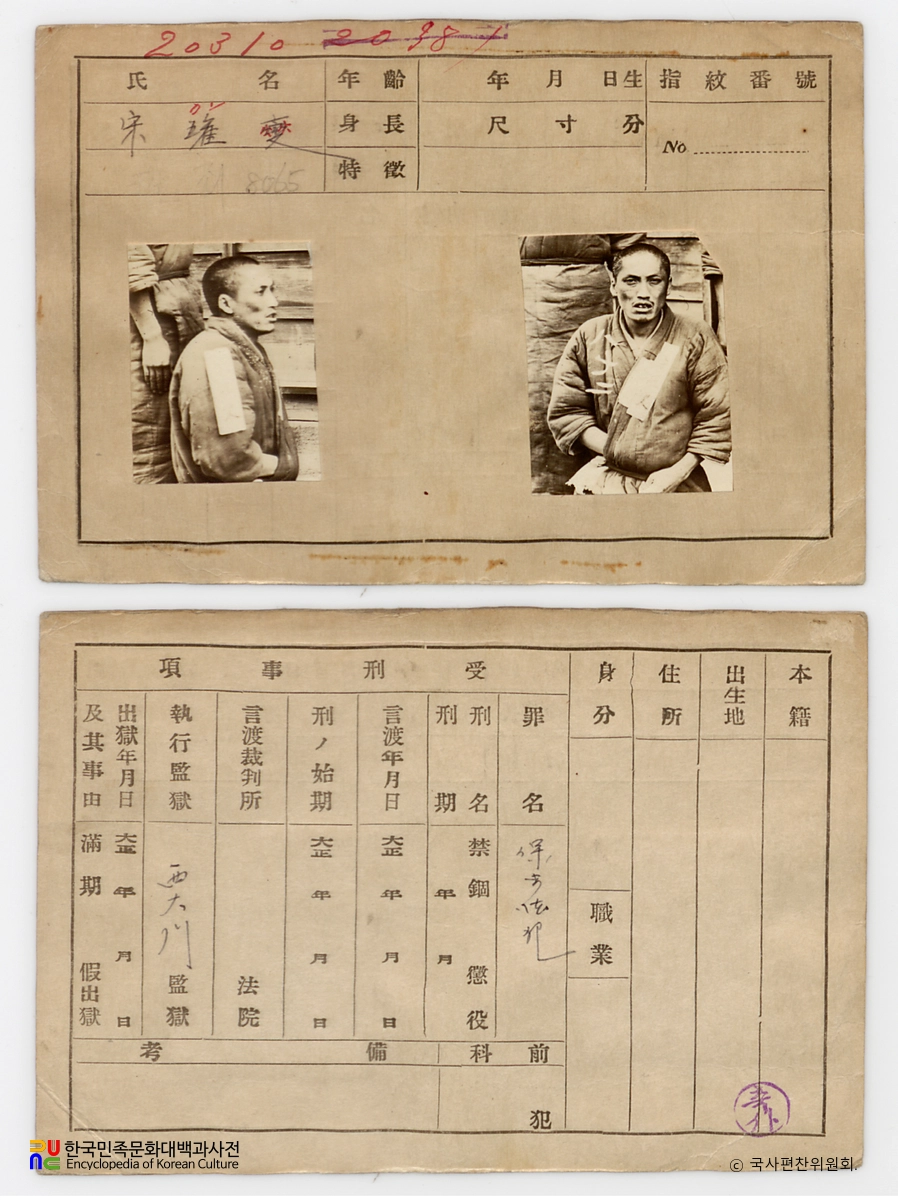 20310
氏 名 年齡 年 月 日生 指紋番號
宋 身長 尺 寸 分 No
8065 特徵
受刑事項 身分 住所 出生地 本籍
罪名 刑名 刑期 言渡年月日 刑ノ始期 言渡裁判所 執行監獄 出獄年月日及其事由
保安法犯
禁錮 懲役
年 月
大正 年 月 日
大正 年 月 日
法院
西大門監獄
大正 年 月 日
滿期 假出獄
職業
前科 犯
備考
한국민족문화대백과사전
Encyclopedia of Korean Culture
© 국사편찬위원회.